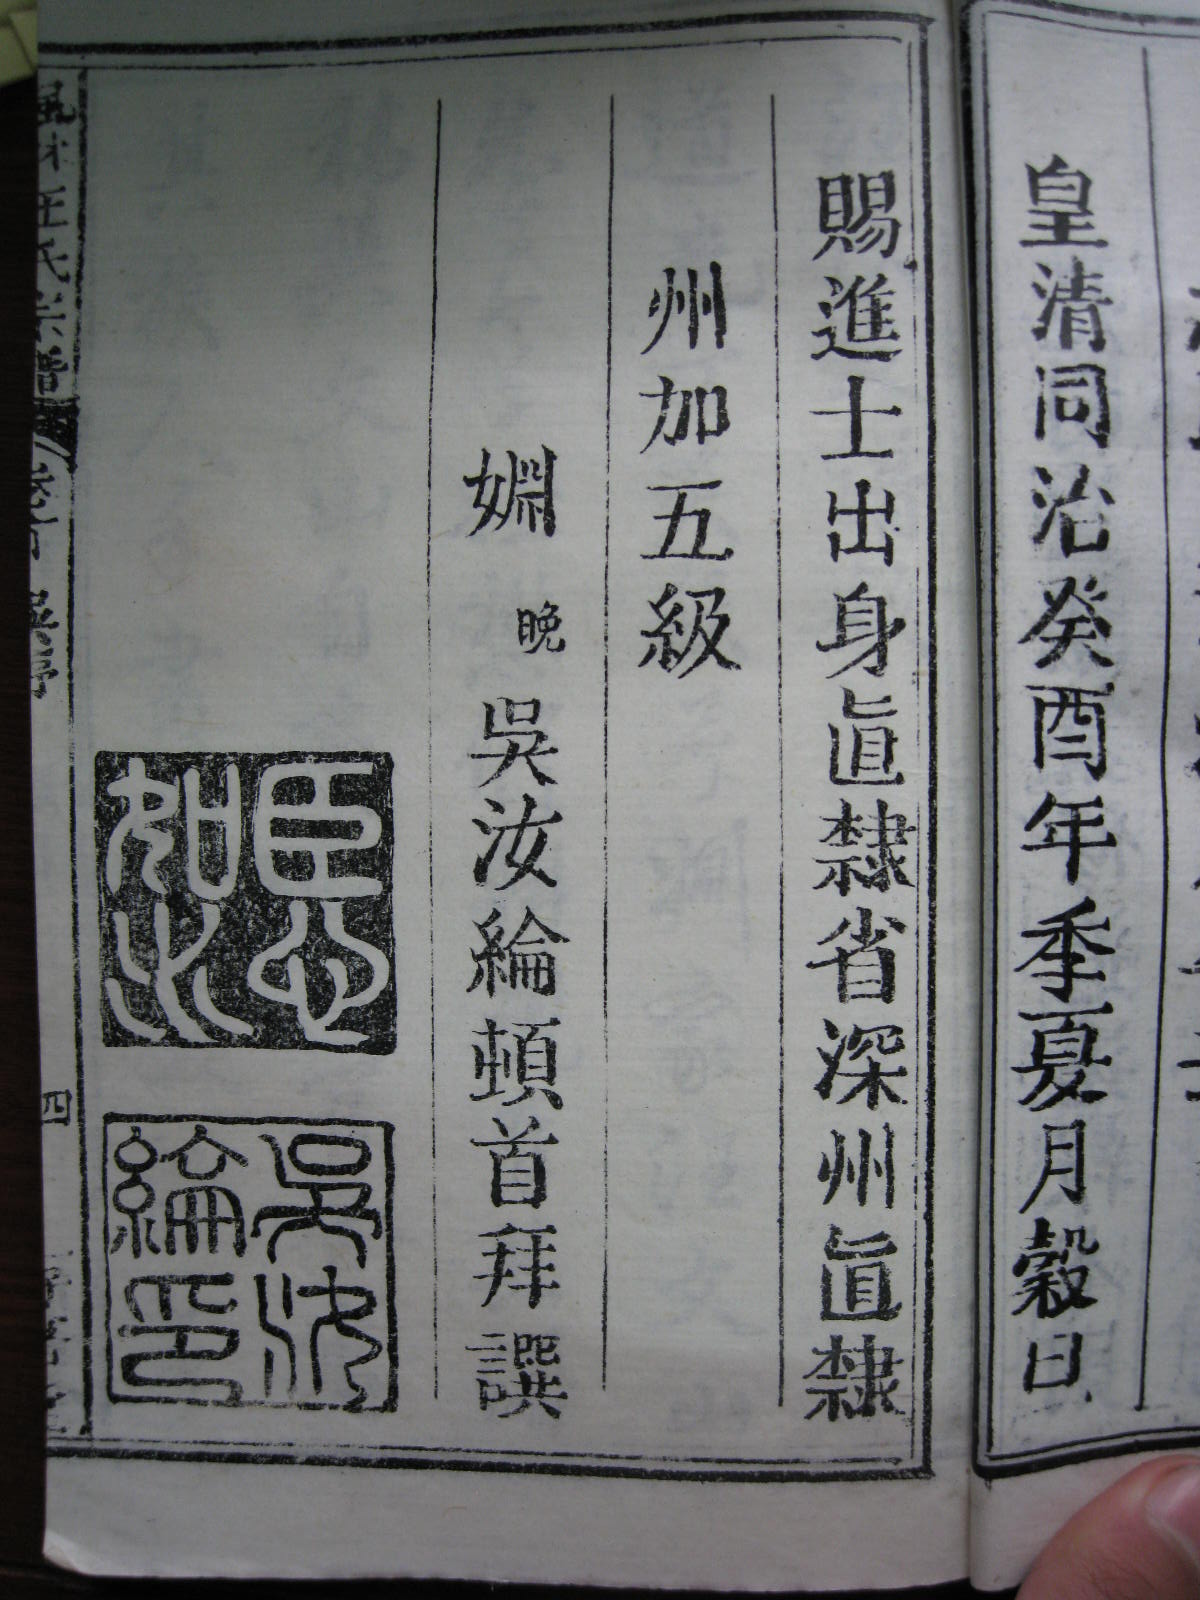 皇清同治癸酉年季夏月穀日
賜進士出身直隸省深州直隸
州加五級
婣晚吳汝綸頓首拜譔
臣心如水
吳汝綸印
氏宗譜
吳序
四